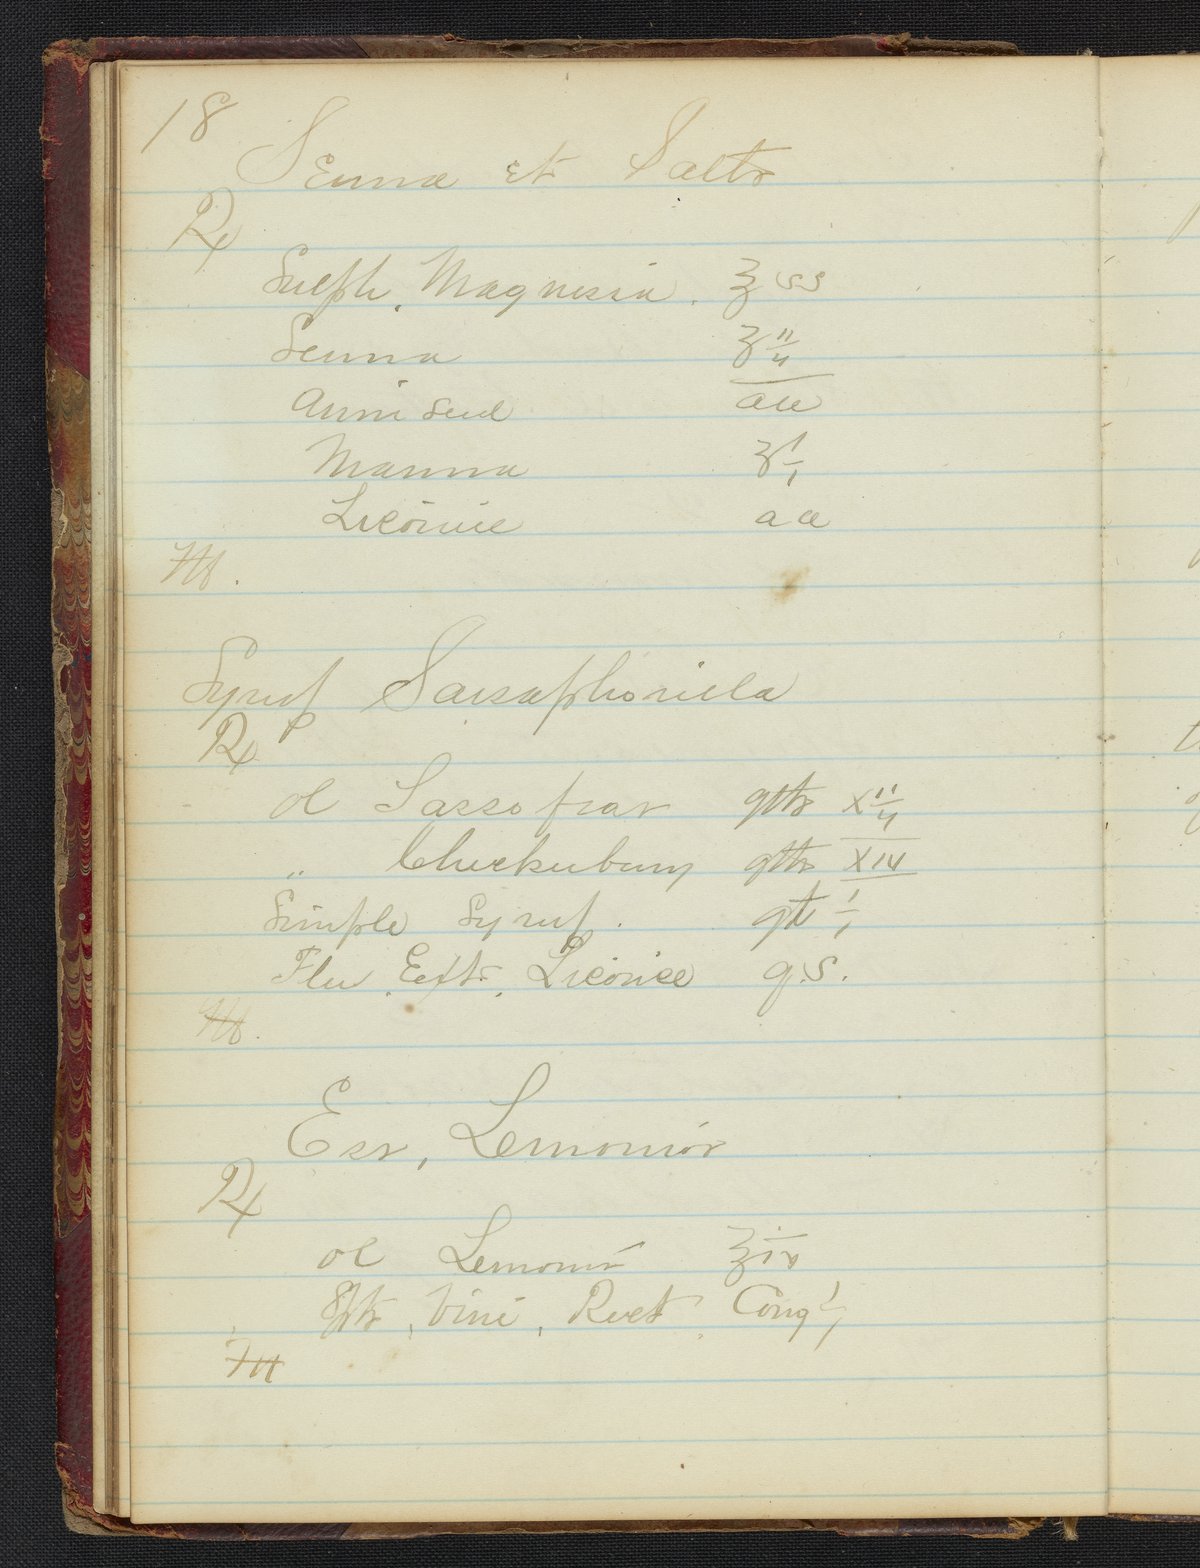 18
Senna et Salts
℞
Sulph. Magnesia. ℥ ss
Senna ℥ ii
Anni Seed aa
Manna ℥ i
Licorice aa
M.
Syrup Sarsaphoriela
℞
ol Sassafras gtts xii
" Checkerbery gtts XIV
Simple Syrup. qt i
Flu. Extr. Licorice q.s.
M.
Ess. Lemonis
℞
ol Lemonis ℥ ix
Spts. Vini. Rect. Cong i
M